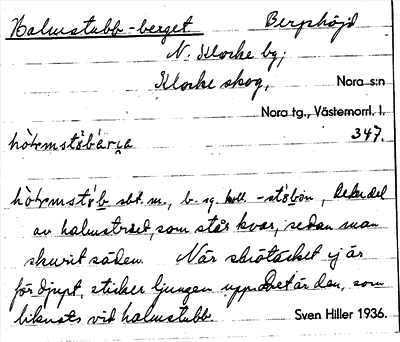 Halmstubb-berget Berghöjd
N. Klocke by,
Klocke skog, Nora s:n
Nora tg., Västernorrl. l.
347.
hò̀ḷmstö̀bärja
hò̀ḷmstö́b sbt. m., b. sg. koll. -stö̀bön, delen
av halmstrået, som står kvar, sedan man
skurit säden. När snötäcket ej är
för djupt, sticker ljungen upp. Det är den, som
liknats vid halmstubb. Sven Hiller 1936.